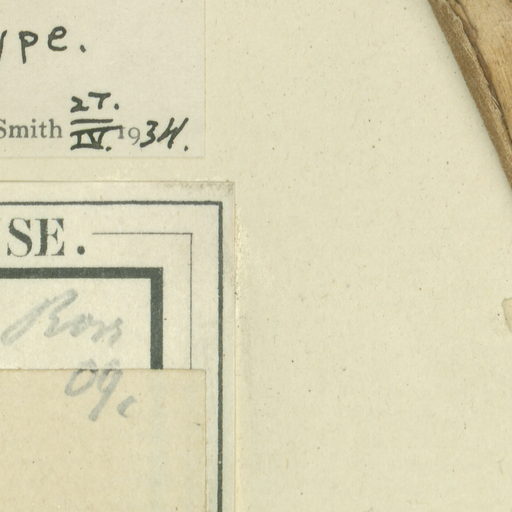 ype.
Smith 27. IV. 1934.
SE.
09.